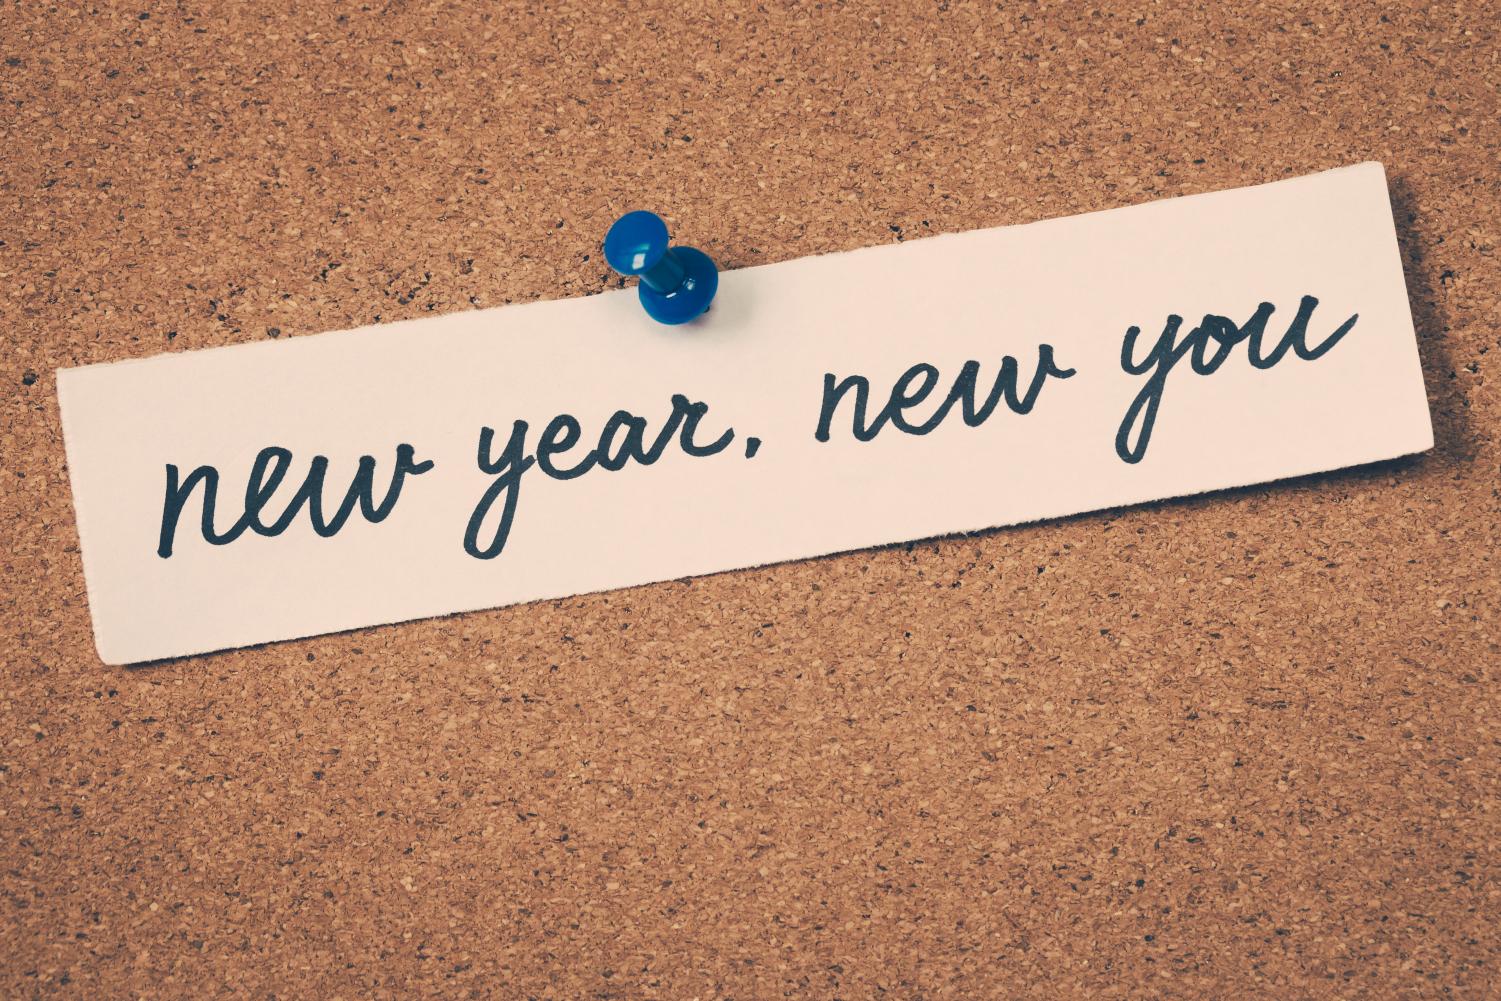 new year, new you